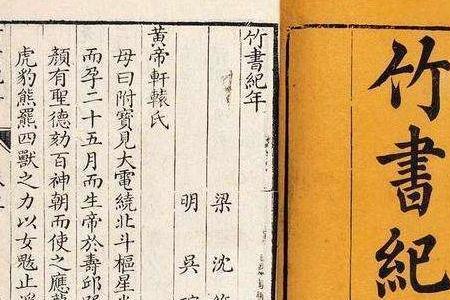 竹書紀
竹書紀年
梁 沈
明 吳
黃帝軒轅氏
母曰附寶見大電繞北斗樞星光
而孕二十五月而生帝於壽邱
顏有聖德劾百神朝而使之應龍
虎豹熊羆四獸之力以女魃止